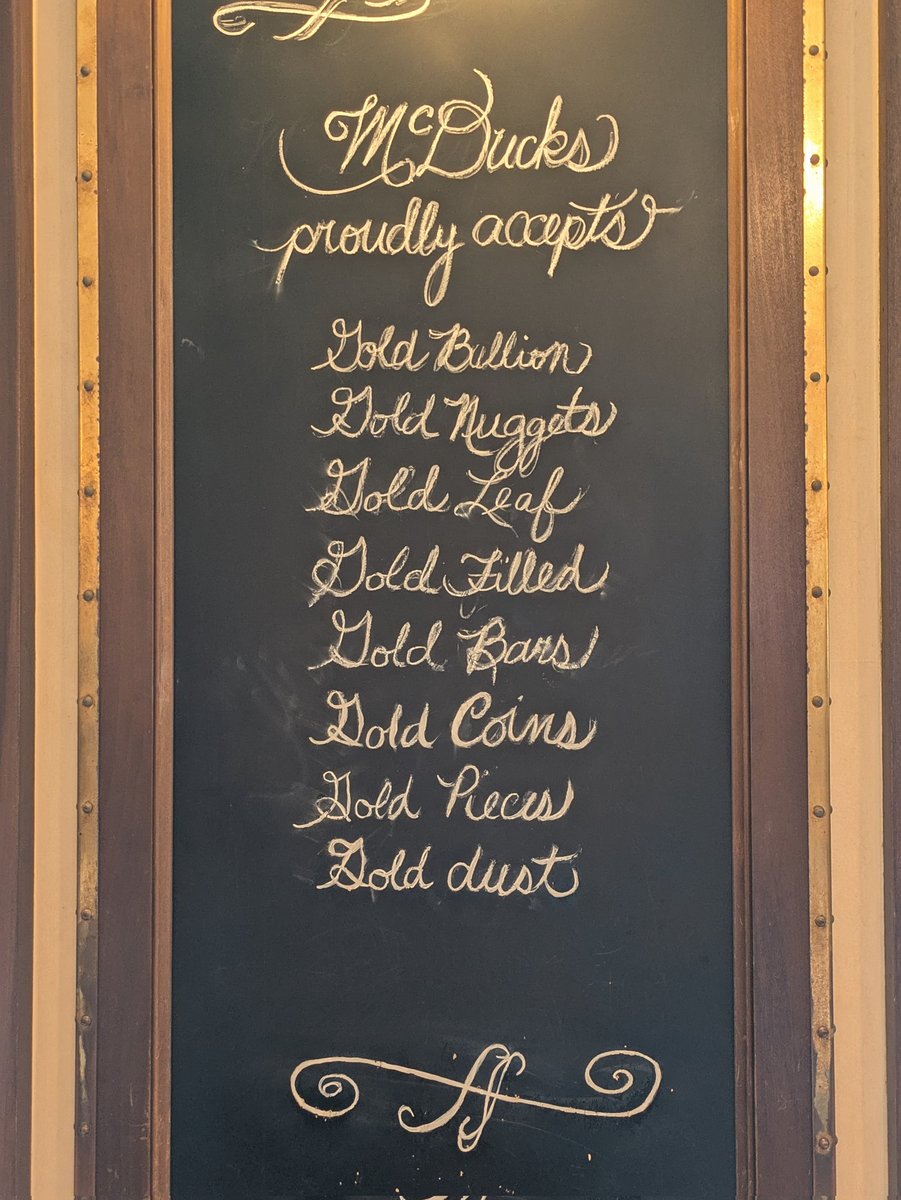 McDucks
proudly accepts
Gold Bullion
Gold Nuggets
Gold Leaf
Gold Filled
Gold Bars
Gold Coins
Gold Pieces
Gold dust